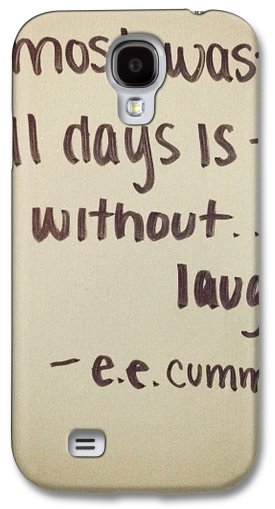 most was
ll days is -
without..
laug
- e.e. cumm